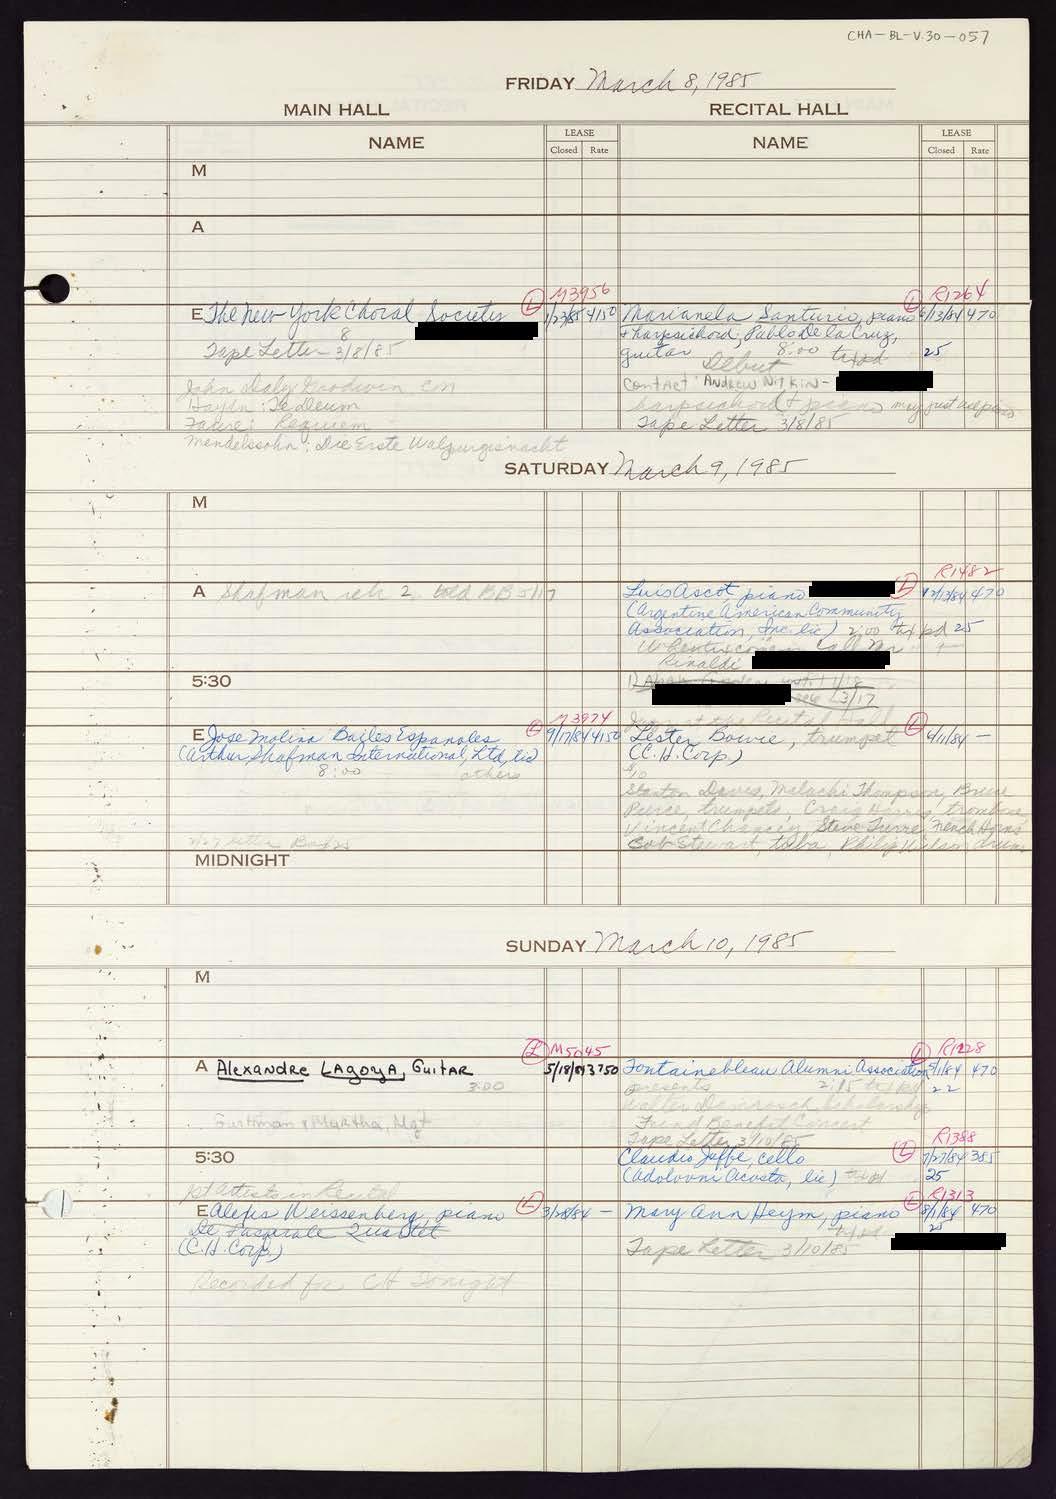 CHA-BL-V.30-057
FRIDAY March 8, 1985
MAIN HALL
RECITAL HALL
NAME
LEASE
Closed Rate
NAME
LEASE
Closed Rate
M
A
M3956
E The New York Choral Society L 4150
8
Tape Letter 3/8/85
John Daly Goodwin con
Haydn: Te Deum
Faure: Requiem
Mendelssohn: Die Erste Walpurgisnacht
R1264
Marianela Santurio, piano L 470
+ harpsichord; Pablo De la Cruz,
guitar 8:00 25
Debut
Contact: Andrew Nitkin-
harpsichord + piano may just use piano
Tape Letter 3/8/85
SATURDAY March 9, 1985
M
A Shafman reh 2 told BB
R1482
Luis Ascot piano L 470
(Argentine American Community
Association, Inc. lic) 2:00 tx pd 25
call Mr
Rinaldi
5:30
M3974
E Jose Molina Bailes Espanoles L 9/17/84 4150
(Arthur Shafman International, Ltd, lic)
8:00 others
Jazz at the Recital Hall
Lester Bowie, trumpet L 6/11/84 -
(C.H. Corp.)
Stanton Davis, Malachi Thompson, Bruce
Purse, trumpets, Craig Harris, trombone
Vincent Chancey, Steve Turre, French Horns
Bob Stewart, tuba, Philip Wilson drums
MIDNIGHT
SUNDAY March 10, 1985
M
L M5045
A Alexandre Lagoya, Guitar 5/18/84 3750
3:00
Gurtman & Murtha, Mgt
L R1228
Fontainebleau Alumni Association 5/1/84 470
presents 2:15 tx pd 22
Walter Damrosch Scholarship
Fund Benefit Concert
Tape Letter 3/10/85
5:30
R1388
Claudio Jaffe, cello L 7/27/84 385
(Adolovni Acosta, lic) tx pd 25
pt Artists in Recital
E Alexis Weissenberg, piano L 3/28/84 -
De Pasquale Quartet
(C.H. Corp.)
Recorded for CH Tonight
R1313
Mary Ann Heym, piano L 8/1/84 470
tx pd 25
Tape Letter 3/10/85